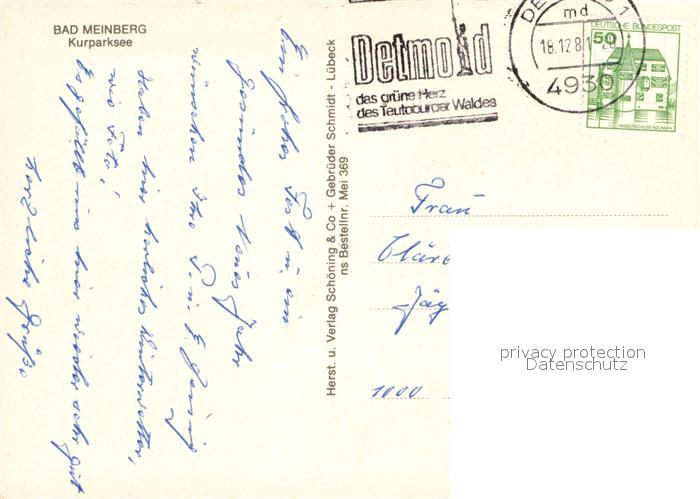 BAD MEINBERG
Kurparksee
Ein frohes Fest u. ein
gesundes neues Jahr
wünschen Ihnen
Haben hier herrliches Winterwetter,
wie Foto!
Es gefällt uns hier wieder sehr gut
Herzliche Grüße
Herst. u. Verlag Schöning & Co + Gebrüder Schmidt - Lübeck
ns Bestellnr. Mei 369
Detmold
das grüne Herz
des Teutoburger Waldes
md
18.12.8
4930
DEUTSCHE BUNDESPOST
50
WASSERSCHLOSS INZLINGEN
Frau
Cläre
Jäg
1000
privacy protection
Datenschutz